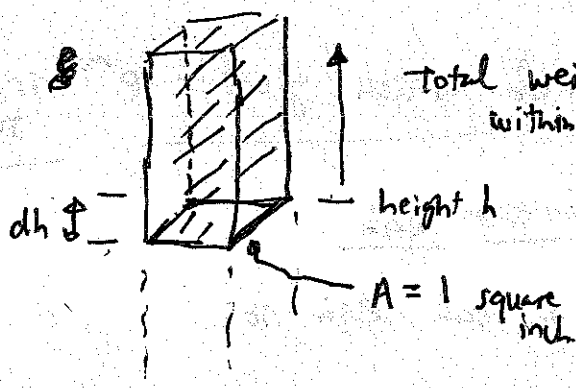 Total
within
height h
dh
A = 1 square
inch